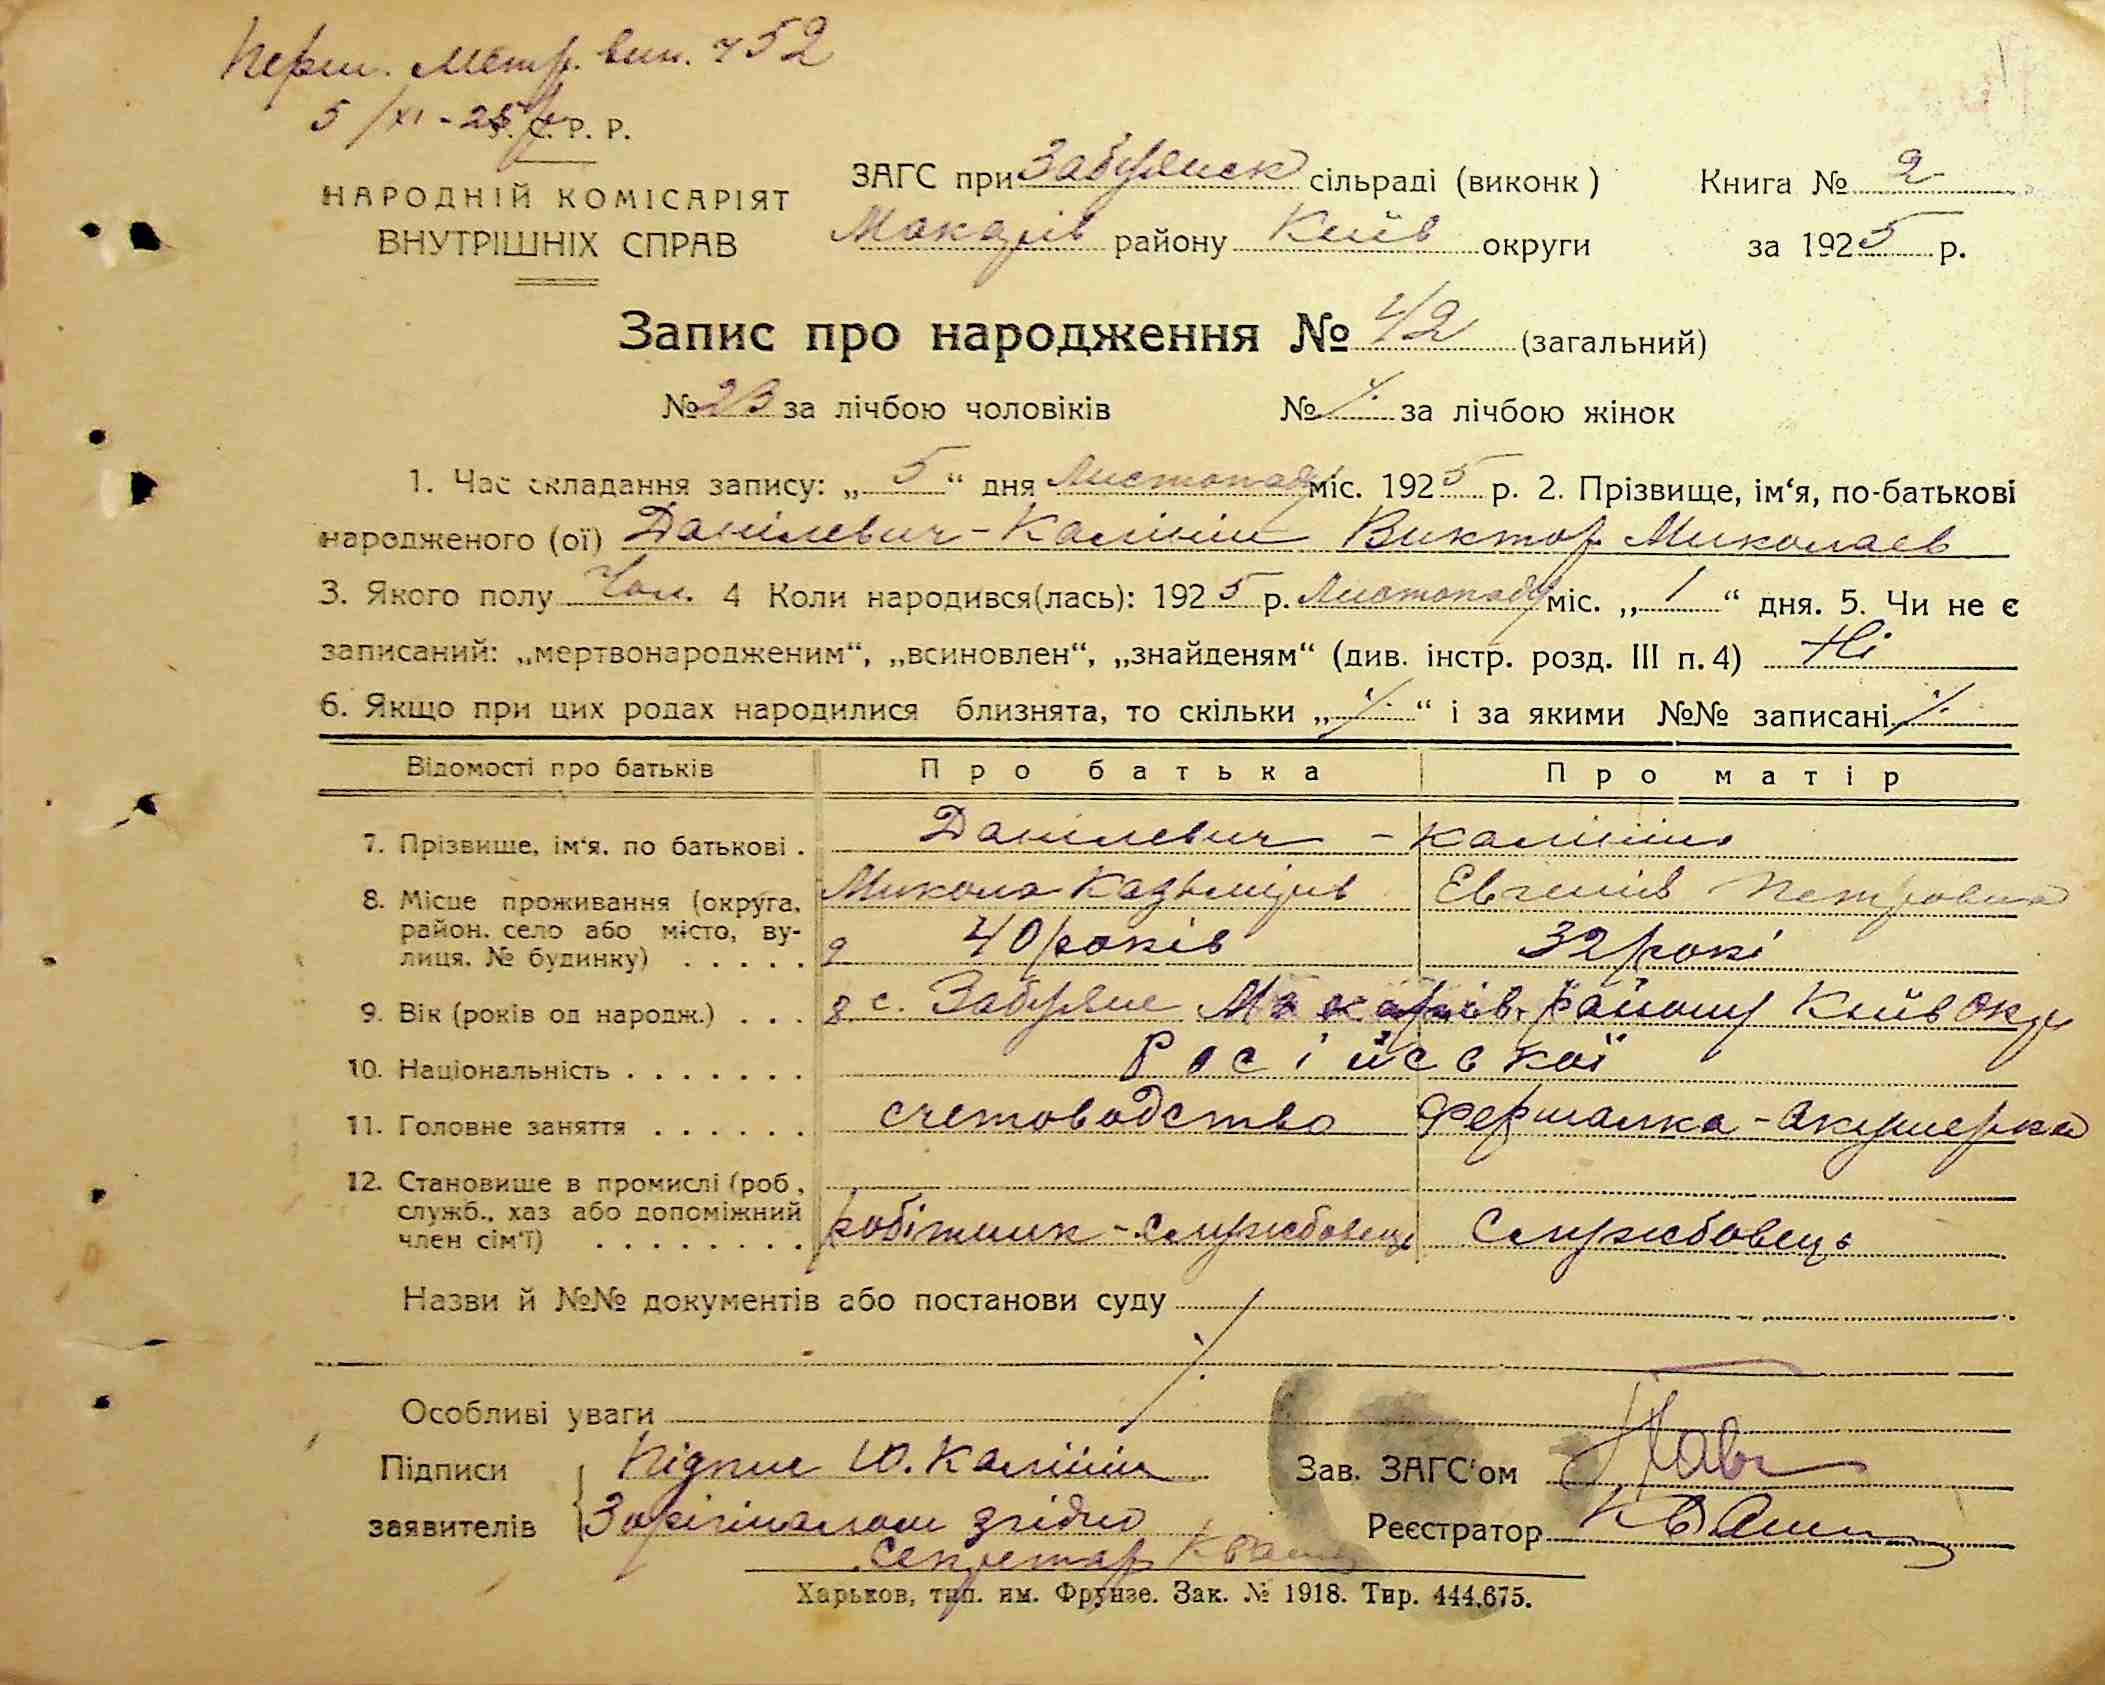 Перш. Метр. вип. ч 52
5/XI-25 р
У. С. Р. Р.
НАРОДНІЙ КОМІСАРІЯТ
ВНУТРІШНІХ СПРАВ
ЗАГС при Забуянск сільраді (виконк)
Макарів району Київ округи
Книга № 2
за 1925 р.
Запис про народження № 42 (загальний)
№ 23 за лічбою чоловіків № за лічбою жінок
1. Час складання запису: „5“ дня Листопада міс. 1925 р. 2. Прізвище, ім‘я, по-батькові
народженого (ої) Данілевич-Калінін Виктор Миколаев
3. Якого полу Чол. 4 Коли народився(лась): 1925 р. Листопаду міс. „1“ дня. 5. Чи не є
записаний: „мертвонародженим“, „всиновлен“, „знайденям“ (див. інстр. розд. III п. 4) Ні
6. Якщо при цих родах народилися близнята, то скільки „ “ і за якими №№ записані
Відомості про батьків Про батька Про матір
7. Прізвище, ім‘я, по батькові . Данілевич - Калінін
8. Місце проживання (округа, район, село або місто, вулиця, № будинку) . . . . .
Микола Казьмірів Евгенія Петровна
9 40 років 32 рокі
9. Вік (років од народж.) . . . 8. с. Забуяне Макарів. району Київ Окр
10. Національність . . . . . . . Російської
11. Головне заняття . . . . . . счетоводство Фершалка-Акушерка
12. Становище в промислі (роб,
служб., хаз або допоміжний
член сім‘ї) . . . . . . . . робітник-службовець Службовець
Назви й №№ документів або постанови суду
Особливі уваги
Підписи Підпис Ю. Калінін Зав. ЗАГС‘ом
заявителів З орігіналом згідно Реєстратор
Секретар
Харьков, тип. им. Фрунзе. Зак. № 1918. Тир. 444.675.